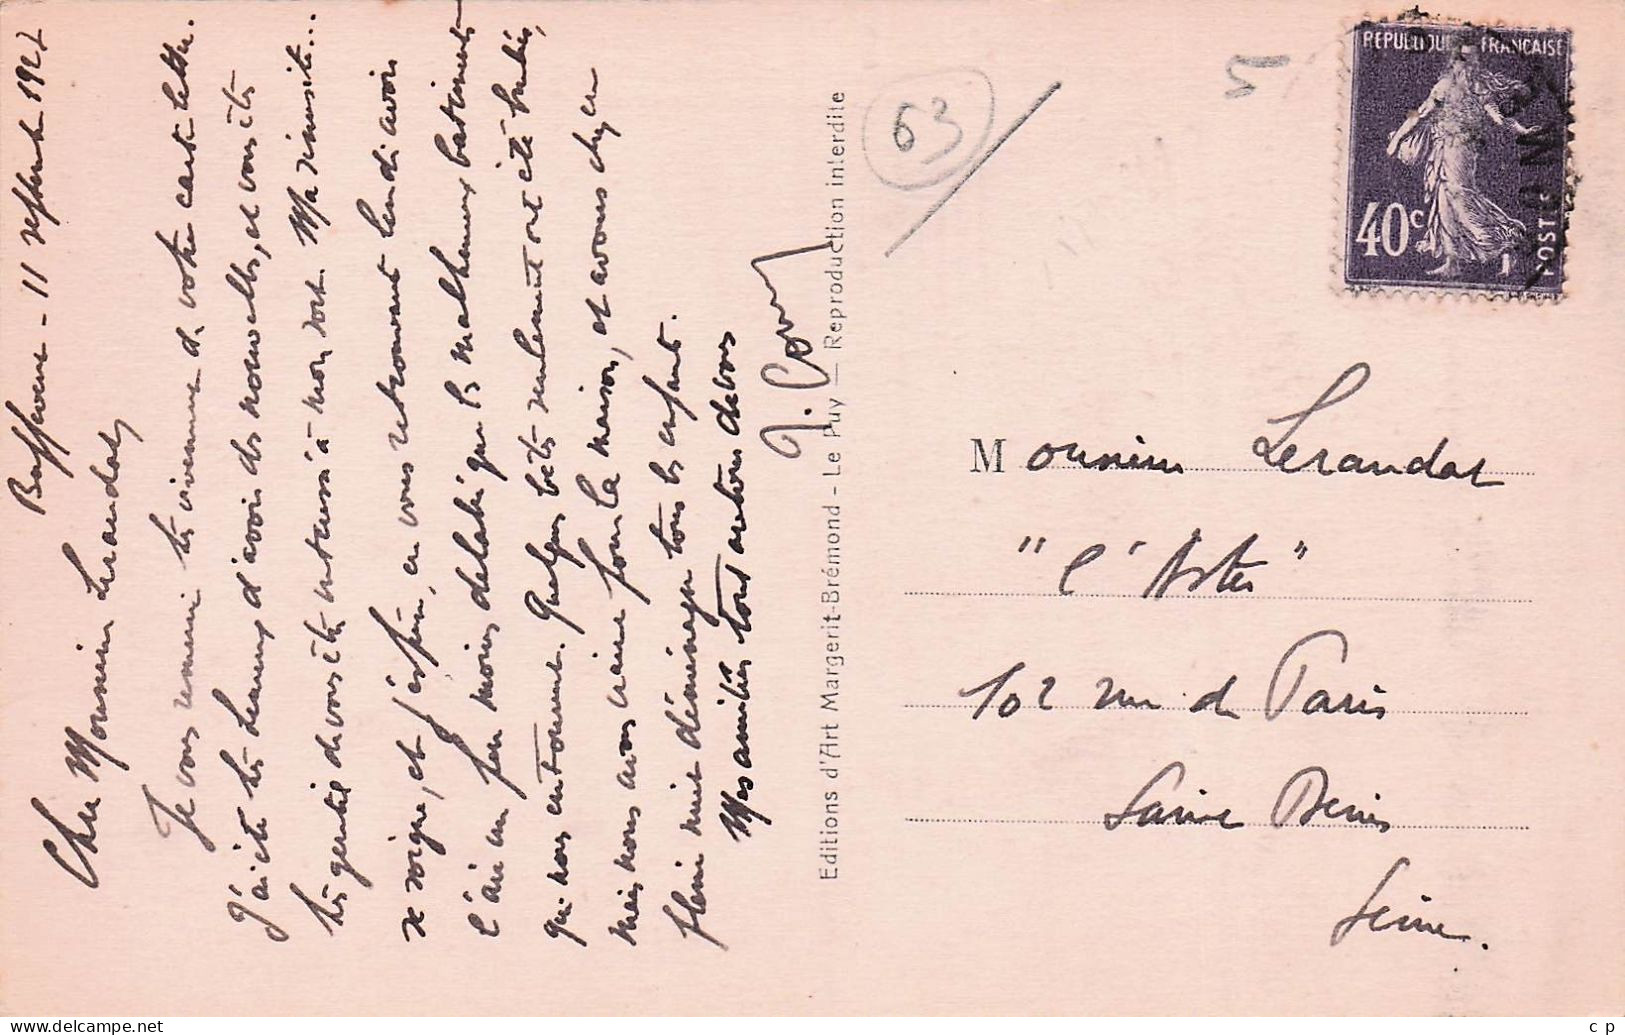 Buffevent - 11 septembre 1927
Cher Monsieur Lerandat,
Je vous remercie très vivement de votre carte lettre.
J'ai été très heureux d'avoir des nouvelles, et vous êtes
très gentil de vous être intéressé à mon sort. Ma sinusite...
se soigne, et j'espère, en vous retrouvant lundi avoir
l'air un peu moins délabré que les malheureux batiments
qui nous entourent. Quelques bêtes seulement ont été
mais nous avons craint pour la maison, et avons dû, en
pleine nuit déménager tous les enfants.
Mes amitiés tout
Editions d'Art Margerit-Brémond - Le Puy — Reproduction interdite
63
5
REPUBLIQUE FRANCAISE
40c
POSTES
Monsieur Lerandat
102 rue de Paris
Saint Denis
Seine.
c p